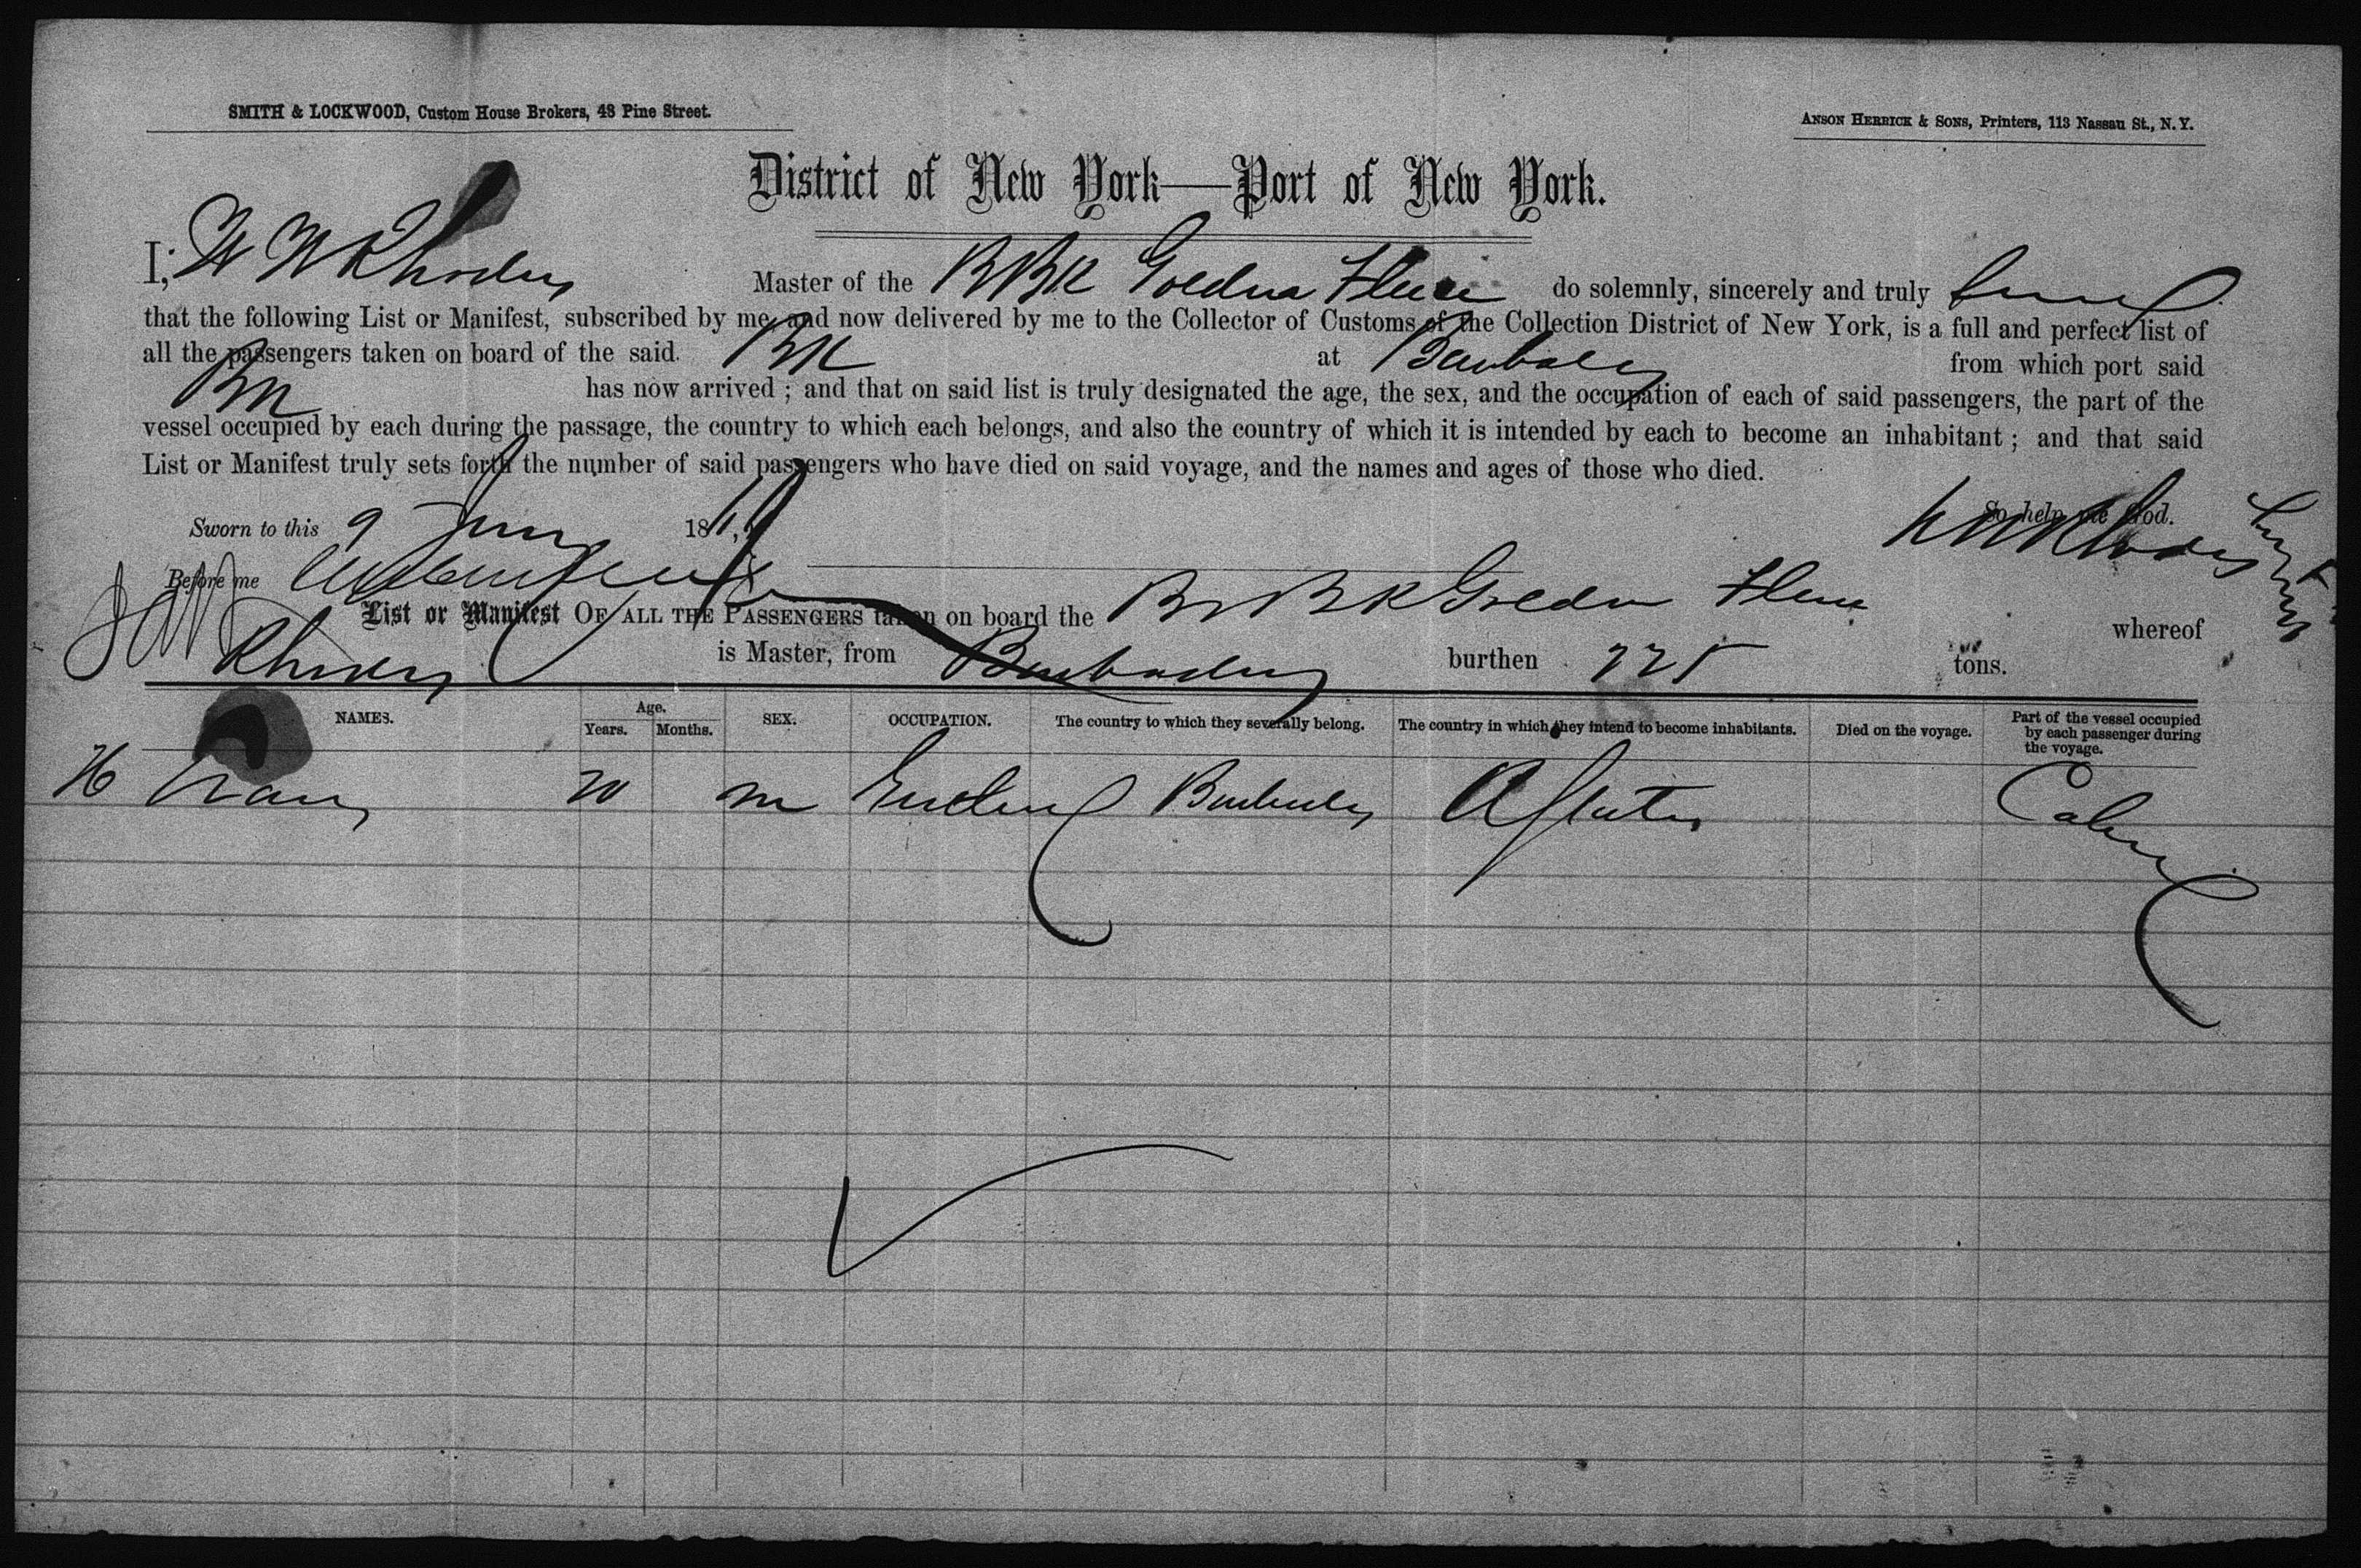 SMITH & LOCKWOOD, Custom House Brokers, 48 Pine Street.
ANSON HERRICK & SONS, Printers, 113 Nassau St., N.Y.
District of New York—Port of New York.
I, W W Rhodes Master of the Br Bk do solemnly, sincerely and truly
that the following List or Manifest, subscribed by me, and now delivered by me to the Collector of Customs of the Collection District of New York, is a full and perfect list of
all the passengers taken on board of the said. Bk at Barbados from which port said
Bk has now arrived ; and that on said list is truly designated the age, the sex, and the occupation of each of said passengers, the part of the
vessel occupied by each during the passage, the country to which each belongs, and also the country of which it is intended by each to become an inhabitant ; and that said
List or Manifest truly sets forth the number of said passengers who have died on said voyage, and the names and ages of those who died.
So help me God.
Sworn to this 9 186
W W Rhodes
Before me
List or Manifest OF ALL THE PASSENGERS taken on board the Br Bk whereof
Rhodes is Master, from Barbados burthen 225 tons.
NAMES. Age. Years. Months. SEX. OCCUPATION. The country to which they severally belong. The country in which they intend to become inhabitants. Died on the voyage. Part of the vessel occupied by each passenger during the voyage.
H 20 m Barbados States Cabin